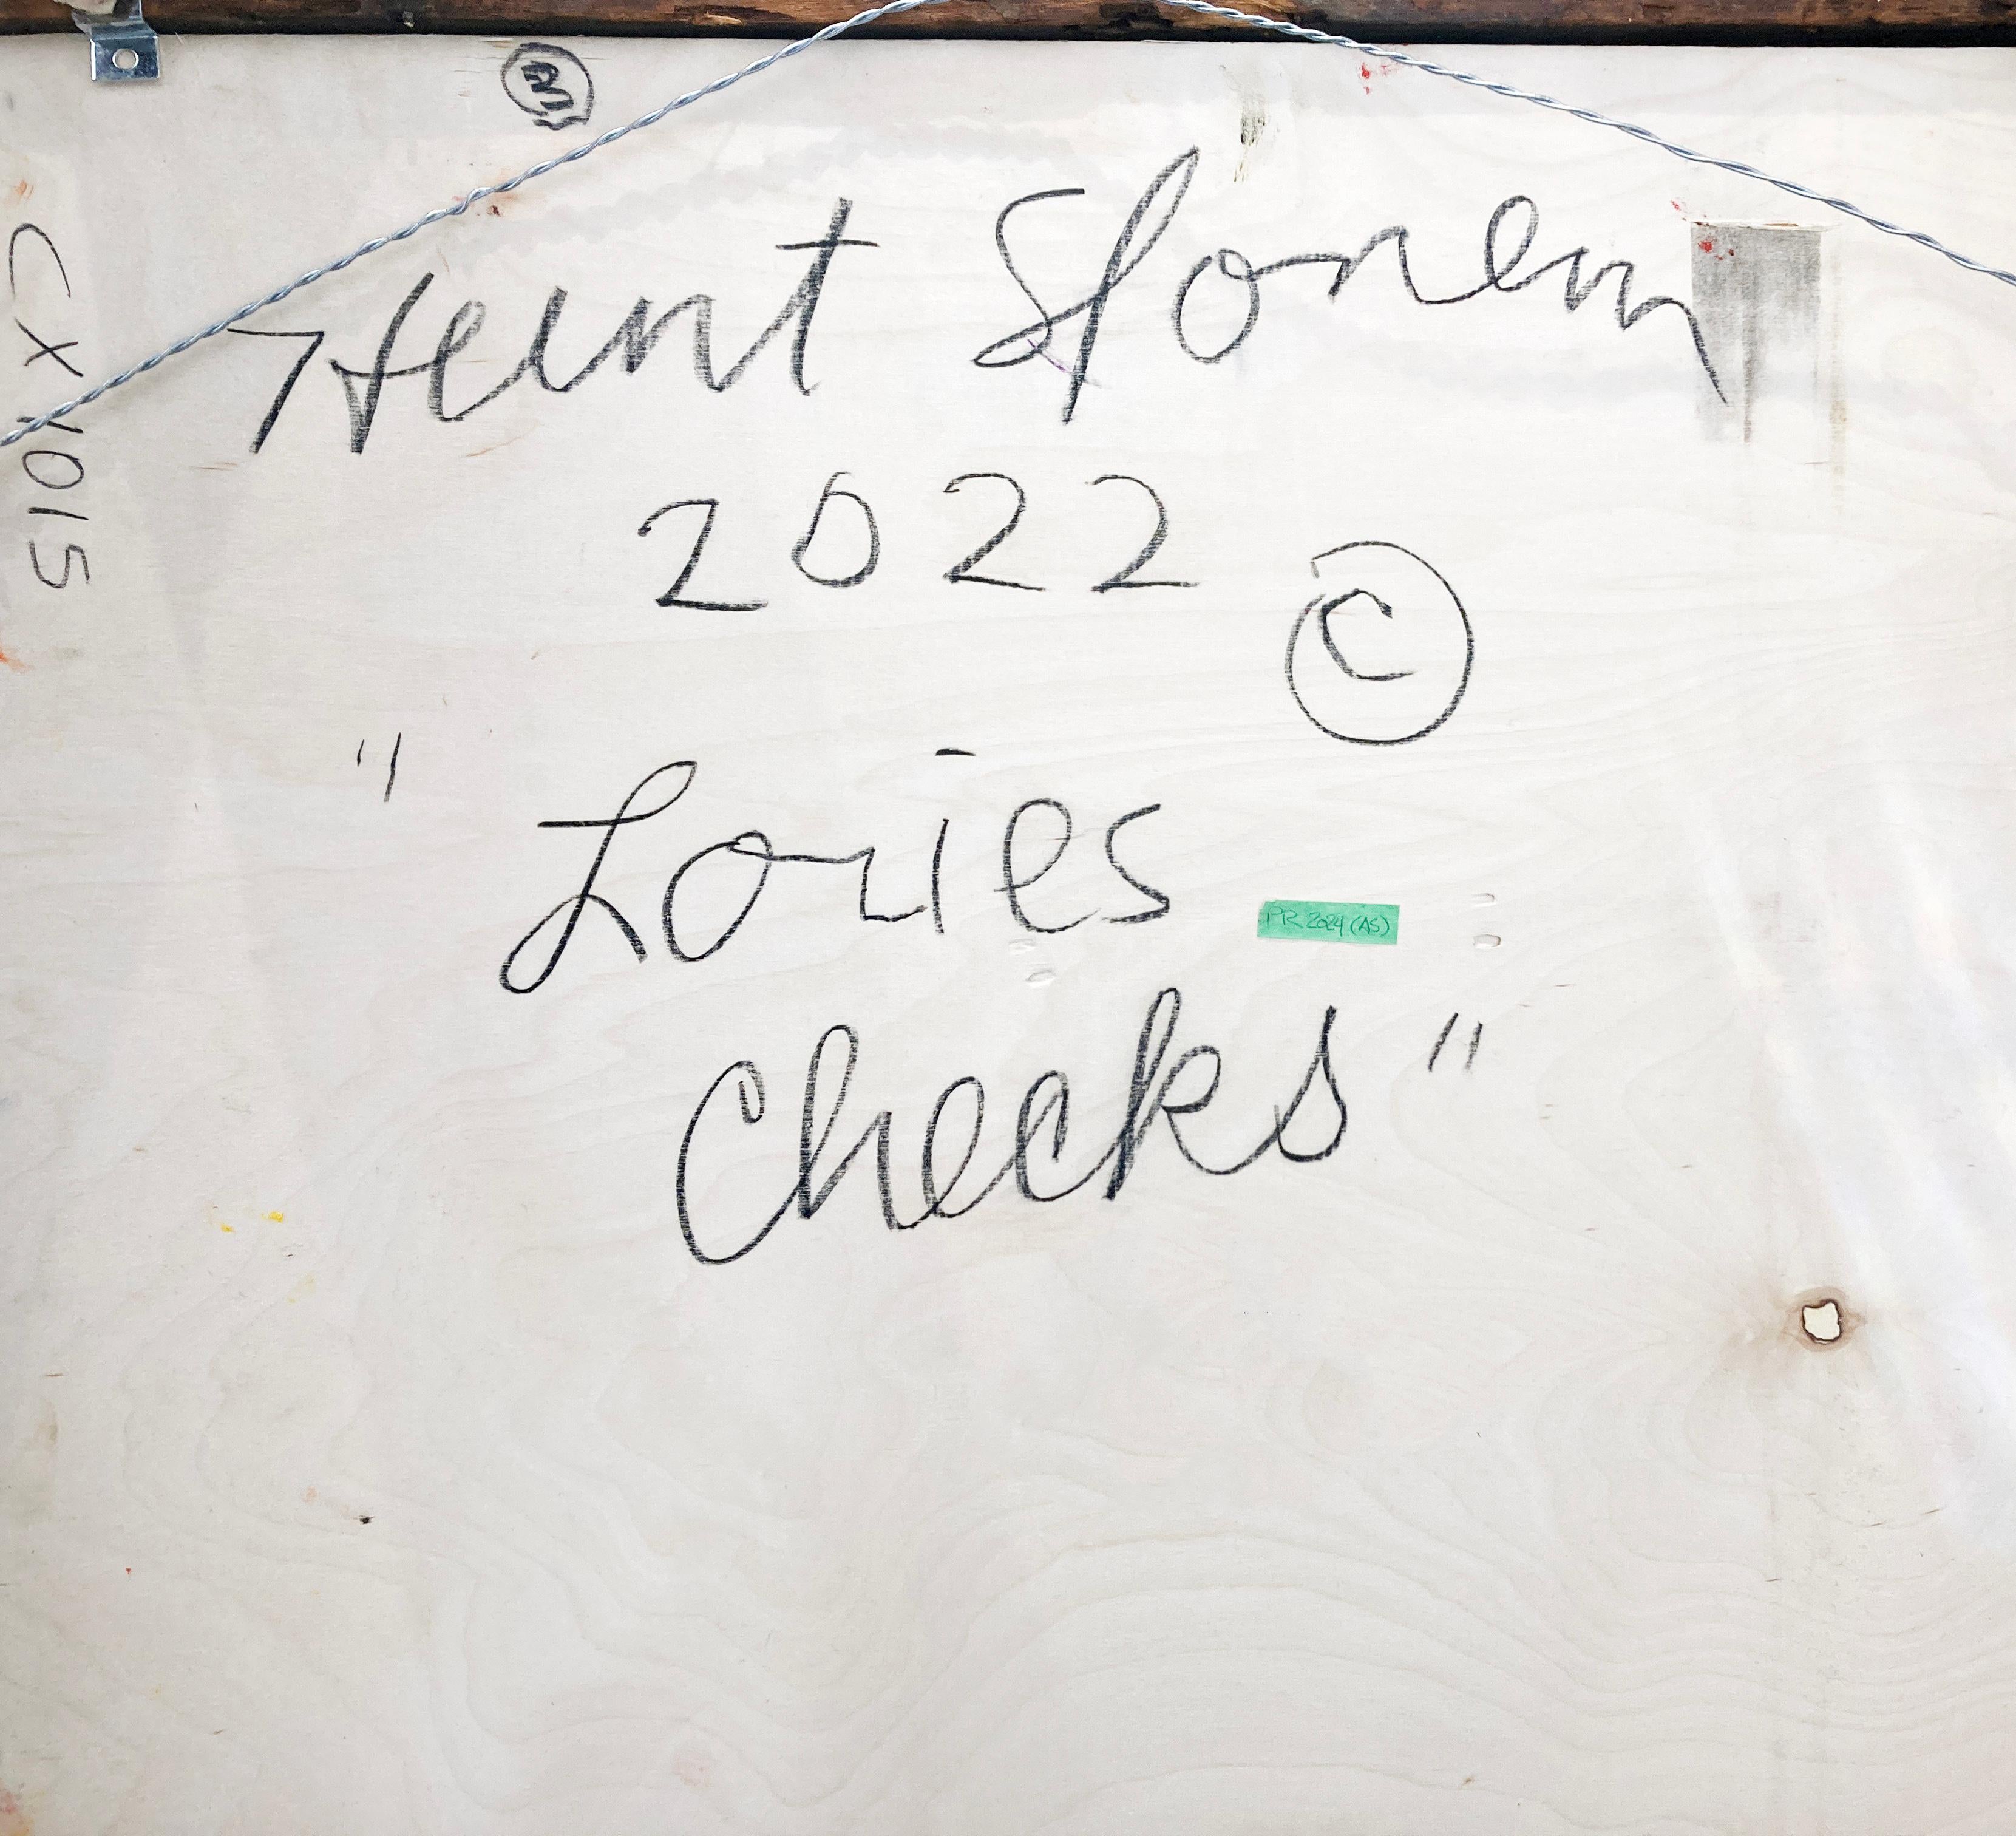 Hunt Slonem
2022
©
" Lories
Checks "
PR 2024 (AS)